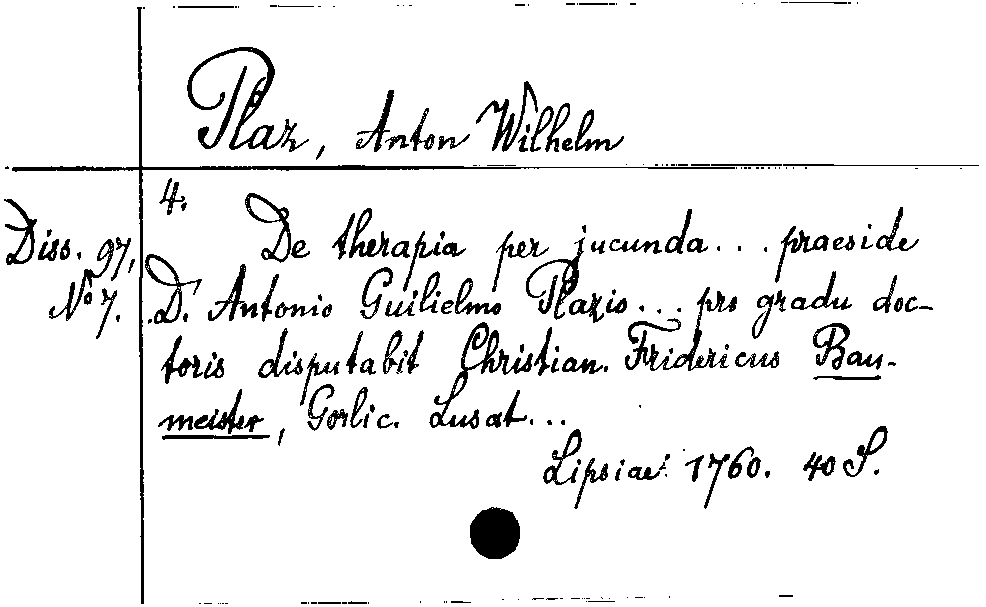 Plaz, Anton Wilhelm
4.
Diss. 97,
No 7.
De therapia per jucunda... praeside
D. Antonio Guilielmo Plazio... pro gradu doc-
toris disputabit Christian. Fridericus Bau-
meister, Gorlic. Lusat...
Lipsiae 1760. 40 S.